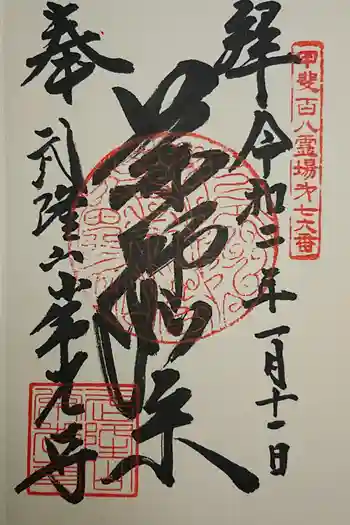 甲斐百八霊場第七六番
奉拝
令和二年一月十一日
薬師如来
武隆山常光寺